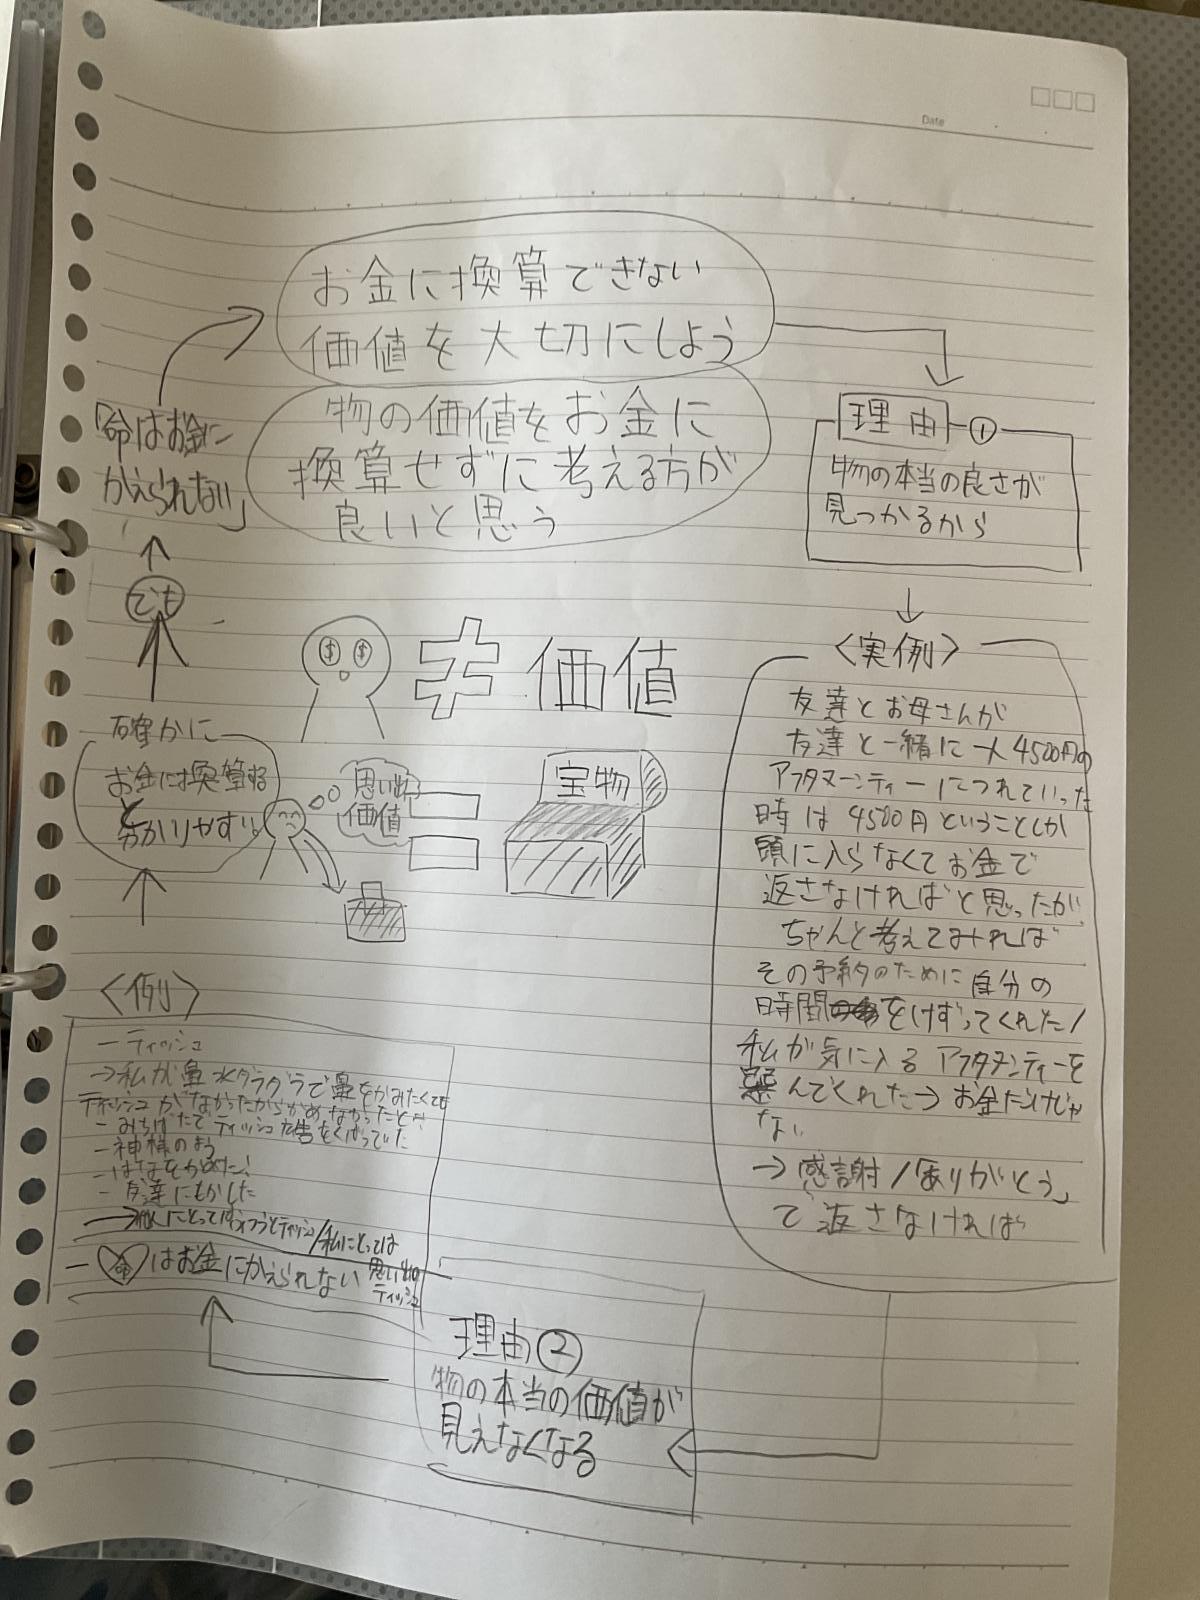 Date
お金に換算できない
価値を大切にしよう
物の価値をお金に
換算せずに考える方が
良いと思う
理由①
物の本当の良さが
見つかるから
<実例>
友達とお母さんが
友達と一緒に一人4500円の
アフタヌーンティーにつれていった
時は4500円ということしか
頭に入らなくてお金で
返さなければと思ったが
ちゃんと考えてみれば
その予約のために自分の
時間をけずってくれた/
私が気に入るアフタヌンティーを
選んでくれた→お金だけじゃ
ない
→感謝/「ありがとう」
で返さなければ
理由②
物の本当の価値が
見えなくなる
<例>
ーティッシュ
→私が鼻水ダラダラで鼻をかみたくても
ティッシュがなかったからかめなかったとき
- みちばたでティッシュ広告をくばっていた
- 神様のよう
- はなをかめた!
- 友達にもかした
→他人にとってはふつうのティッシュ/私にとっては
思い出の
ティッシュ
- 命はお金にかえられない
確かに
お金に換算する
と
分かりやすい
でも
「命はお金に
かえられない」
$ $ ≠ 価値
思い出
価値
=
宝物